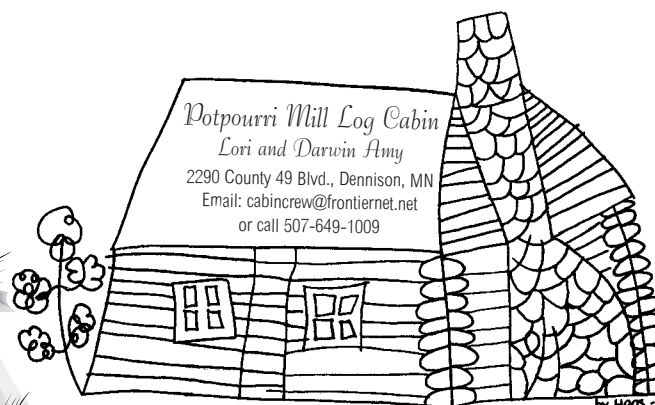 Potpourri Mill Log Cabin
Lori and Darwin Amy
2290 County 49 Blvd., Dennison, MN
Email: cabincrew@frontiernet.net
or call 507-649-1009
by